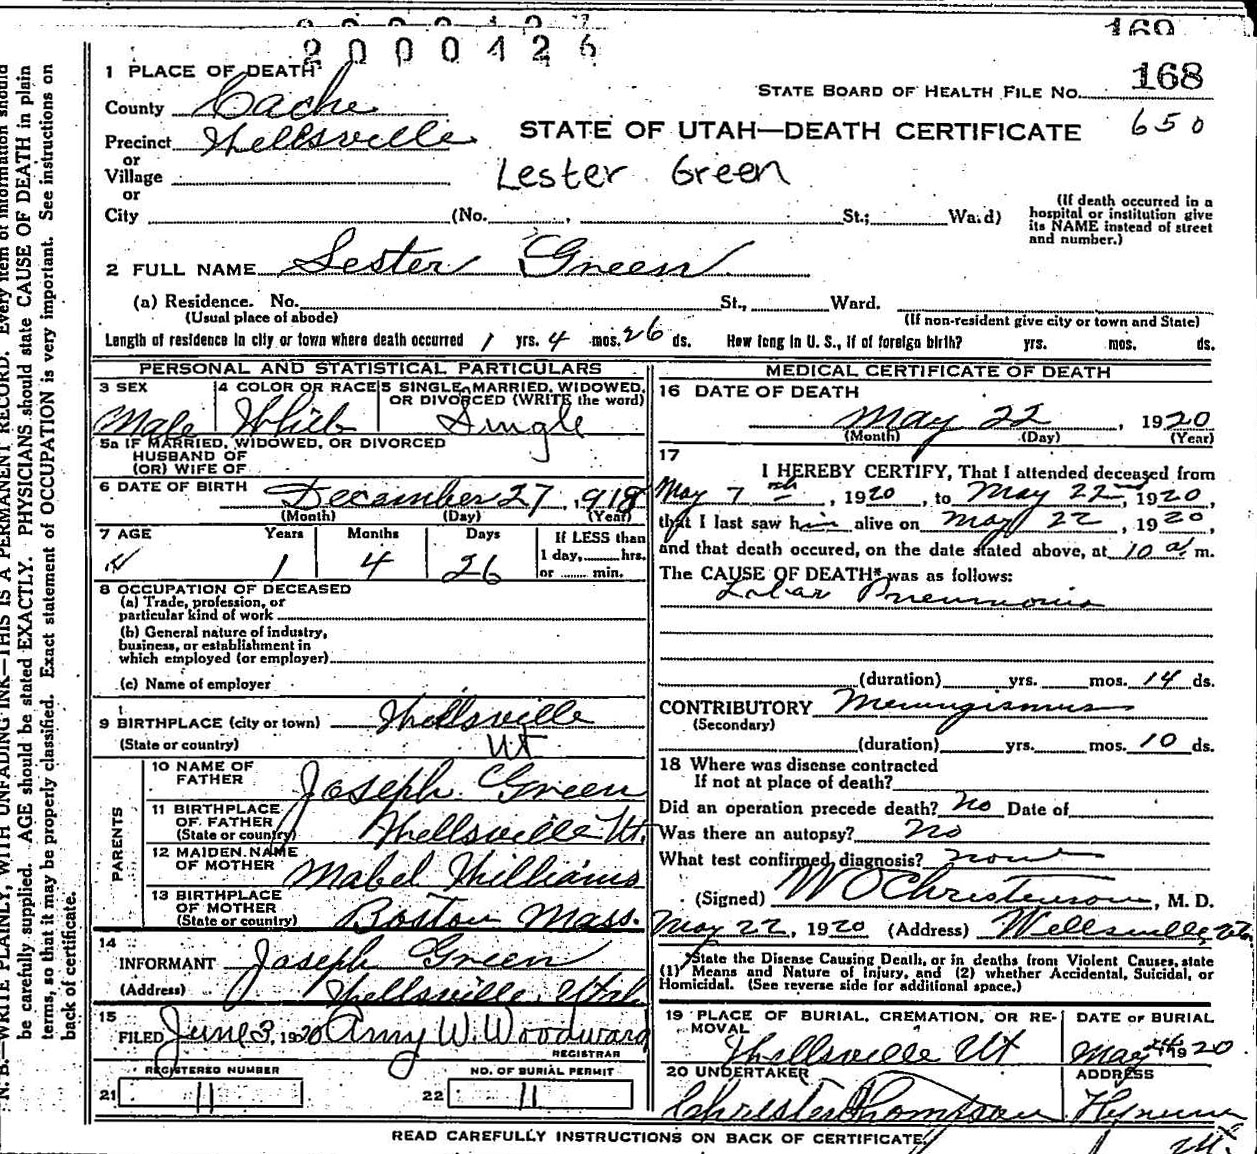 2000426
169
1 PLACE OF DEATH
STATE BOARD OF HEALTH FILE No. 168
County Cache
650
Precinct Wellsville
STATE OF UTAH—DEATH CERTIFICATE
or
Village
Lester Green
or
City (No. , St.; Ward)
(If death occurred in a
hospital or institution give
its NAME instead of street
and number.)
2 FULL NAME Lester Green
(a) Residence. No. St., Ward.
(Usual place of abode)
(If non-resident give city or town and State)
Length of residence in city or town where death occurred 1 yrs. 4 mos. 26 ds. How long in U. S., if of foreign birth? yrs. mos. ds.
PERSONAL AND STATISTICAL PARTICULARS
3 SEX
Male
4 COLOR OR RACE
White
5 SINGLE, MARRIED, WIDOWED,
OR DIVORCED (WRITE the word)
Single
5a IF MARRIED, WIDOWED, OR DIVORCED
HUSBAND OF
(OR) WIFE OF
6 DATE OF BIRTH December 27, 1918
(Month) (Day) (Year)
7 AGE Years Months Days
1 4 26
If LESS than
1 day, hrs.
or min.
8 OCCUPATION OF DECEASED
(a) Trade, profession, or
particular kind of work
(b) General nature of industry,
business, or establishment in
which employed (or employer)
(c) Name of employer
9 BIRTHPLACE (city or town) Wellsville
(State or country) Ut
PARENTS
10 NAME OF
FATHER Joseph Green
11 BIRTHPLACE
OF FATHER
(State or country) Wellsville Ut.
12 MAIDEN NAME
OF MOTHER Mabel Williams
13 BIRTHPLACE
OF MOTHER
(State or country) Boston Mass.
14
INFORMANT Joseph Green
(Address) Wellsville, Utah
15
FILED June 3, 1920 Amy W. Woodward
REGISTRAR
REGISTERED NUMBER
21 11
NO. OF BURIAL PERMIT
22 11
MEDICAL CERTIFICATE OF DEATH
16 DATE OF DEATH
May 22, 1920
(Month) (Day) (Year)
17
I HEREBY CERTIFY, That I attended deceased from
May 7th, 1920, to May 22, 1920,
that I last saw him alive on May 22, 1920,
and that death occured, on the date stated above, at 10 a. m.
The CAUSE OF DEATH* was as follows:
Lobar Pneumonia
(duration) yrs. mos. 14 ds.
CONTRIBUTORY Meningismus
(Secondary)
(duration) yrs. mos. 10 ds.
18 Where was disease contracted
If not at place of death?
Did an operation precede death? No Date of
Was there an autopsy? No
What test confirmed diagnosis? none
(Signed) W O Christenson, M. D.
May 22, 1920 (Address) Wellsville, Utah
*State the Disease Causing Death, or in deaths from Violent Causes, state
(1) Means and Nature of Injury, and (2) whether Accidental, Suicidal, or
Homicidal. (See reverse side for additional space.)
19 PLACE OF BURIAL, CREMATION, OR RE-
MOVAL
Wellsville Ut
DATE OF BURIAL
May 1920
20 UNDERTAKER
Christer Thompson
ADDRESS
Hyrum
Ut.
READ CAREFULLY INSTRUCTIONS ON BACK OF CERTIFICATE.
N. B.—WRITE PLAINLY, WITH UNFADING INK—THIS IS A PERMANENT RECORD. Every item of information should
be carefully supplied. AGE should be stated EXACTLY. PHYSICIANS should state CAUSE OF DEATH in plain
terms, so that it may be properly classified. Exact statement of OCCUPATION is very important. See instructions on
back of certificate.